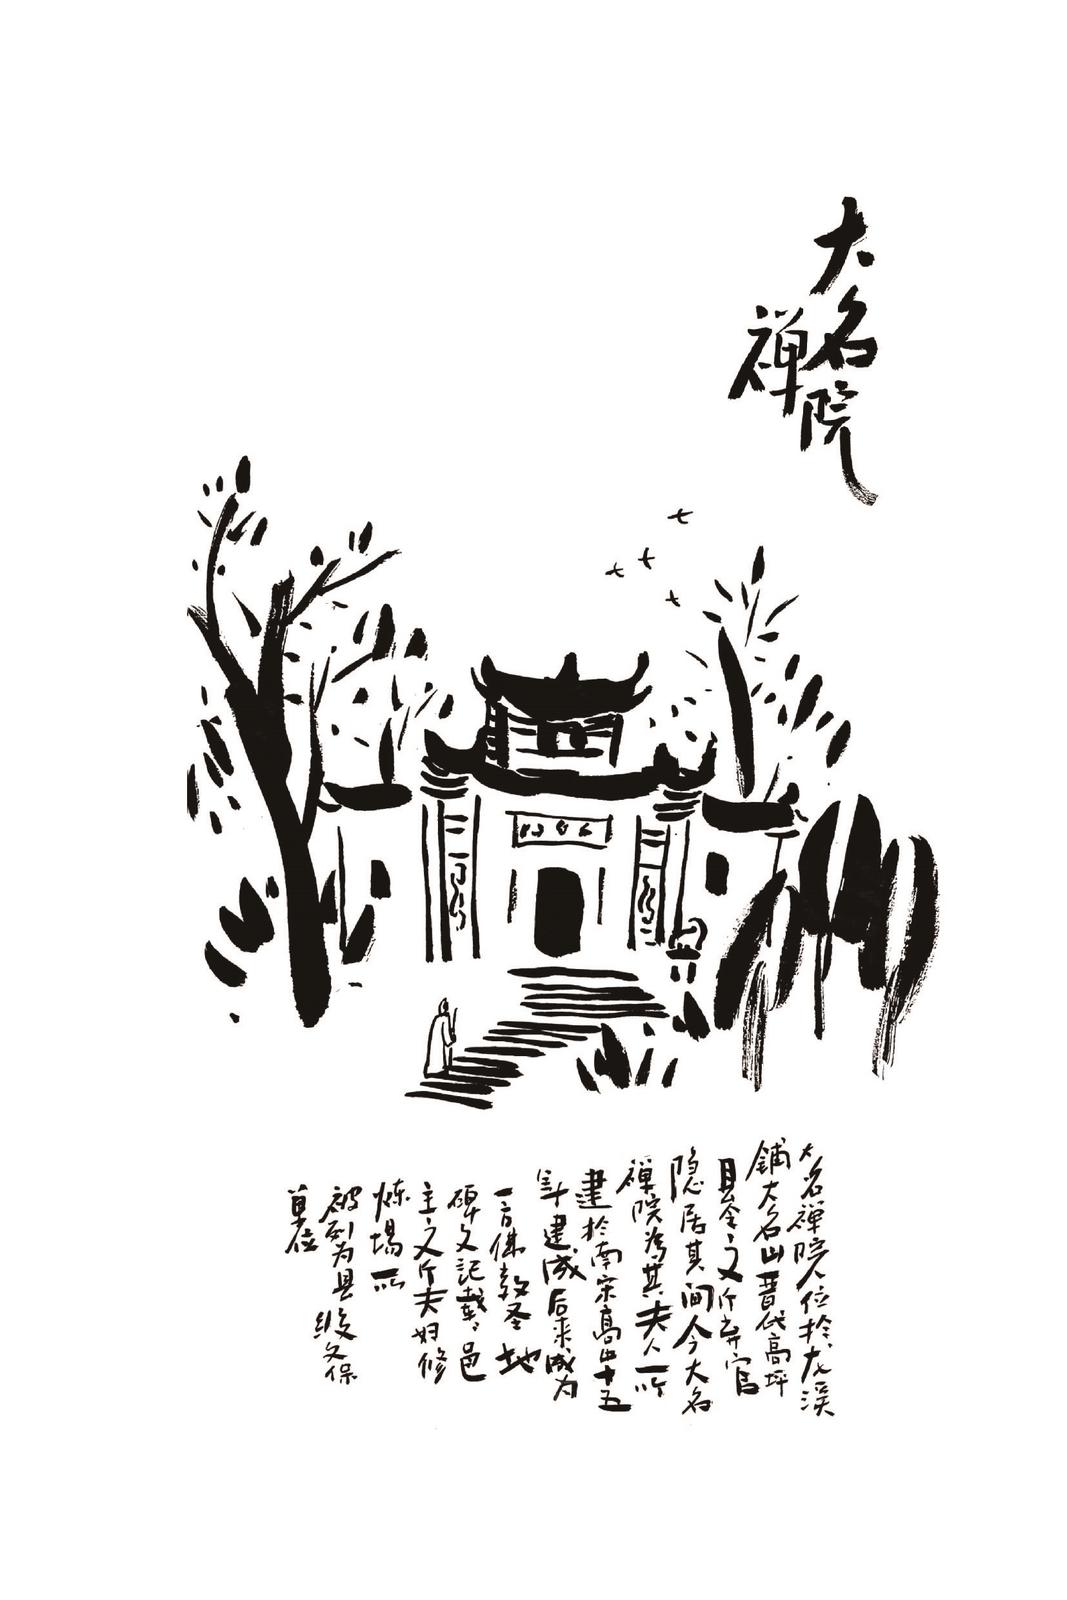 大名禅院
大名禅院位於龙溪
鋪大名山晋代高坪
县令文斤弃官
隐居其间今大名
禅院為其夫人所
建於南宋高宗十五
年建成后来成为
一方佛教圣地
碑文記載、邑
主文斤夫妇修
炼場所
被列为县级文保
单位